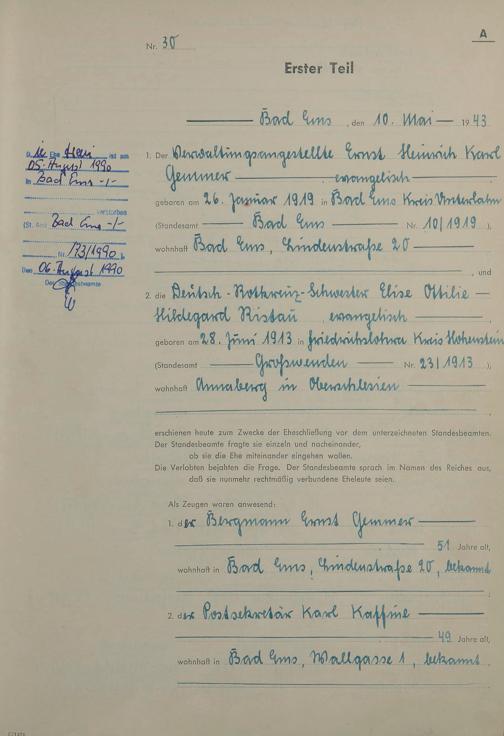 A
Nr. 30
Erster Teil
Bad Ems, den 10. Mai 1943
1. Der Verwaltungsangestellte Ernst Heinrich Karl
Gemmer evangelisch
geboren am 26. Januar 1919 in Bad Ems Kreis Unterlahn
(Standesamt Bad Ems Nr. 10/1919),
wohnhaft Bad Ems, Lindenstraße 20
, und
2. die Deutsch-Rotkreuz-Schwester Elise Ottilie
Hildegard Ristau evangelisch
geboren am 28. Juni 1913 in Friedrichslohra Kreis Hohenstein
(Standesamt Großwenden Nr. 23/1913),
wohnhaft Annaberg in Oberschlesien
erschienen heute zum Zwecke der Eheschließung vor dem unterzeichneten Standesbeamten.
Der Standesbeamte fragte sie einzeln und nacheinander,
ob sie die Ehe miteinander eingehen wollen.
Die Verlobten bejahten die Frage. Der Standesbeamte sprach im Namen des Reiches aus,
daß sie nunmehr rechtmäßig verbundene Eheleute seien.
Als Zeugen waren anwesend:
1. der Bergmann Ernst Gemmer
51 Jahre alt,
wohnhaft in Bad Ems, Lindenstraße 20, bekannt
;
2. der Postsekretär Karl Kaffine
49 Jahre alt,
wohnhaft in Bad Ems, Wallgasse 1, bekannt
.
ist am
05. August 1990
in Bad Ems -/-
verstorben
(St. Amt Bad Ems -/-
Nr. 173/1990)
Den 06. August 1990
Der Standesbeamte